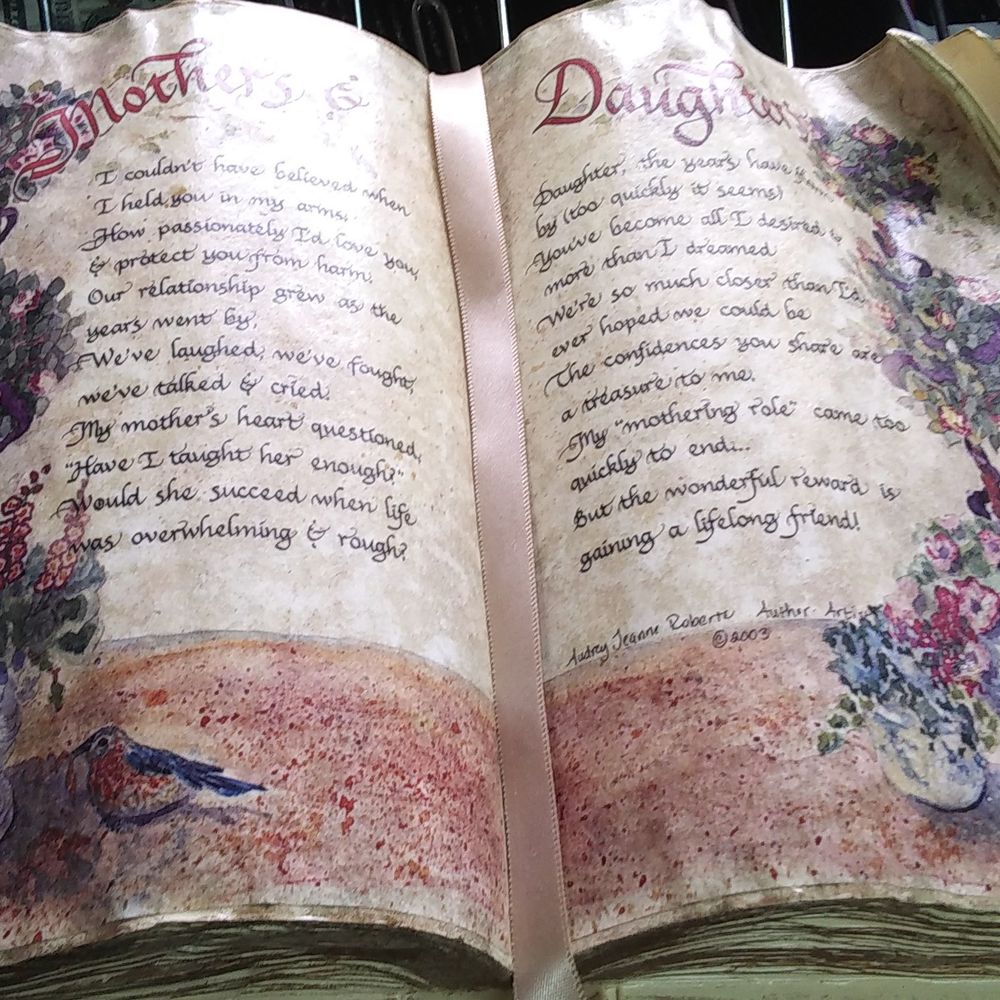 Mothers &
I couldn't have believed when
I held you in my arms,
How passionately I'd love you,
& protect you from harm.
Our relationship grew as the
years went by,
We've laughed, we've fought,
we've talked & cried.
My mother's heart questioned,
"Have I taught her enough?"
Would she succeed when life
was overwhelming & rough?
Daughters
Daughter, the years have
by (too quickly it seems)
You've become all I desired &
more than I dreamed
We're so much closer than I'd
ever hoped we could be
The confidences you share are
a treasure to me.
My "mothering role" came too
quickly to end...
But the wonderful reward is
gaining a lifelong friend!
Audrey Jeanne Roberts Author-
©2003